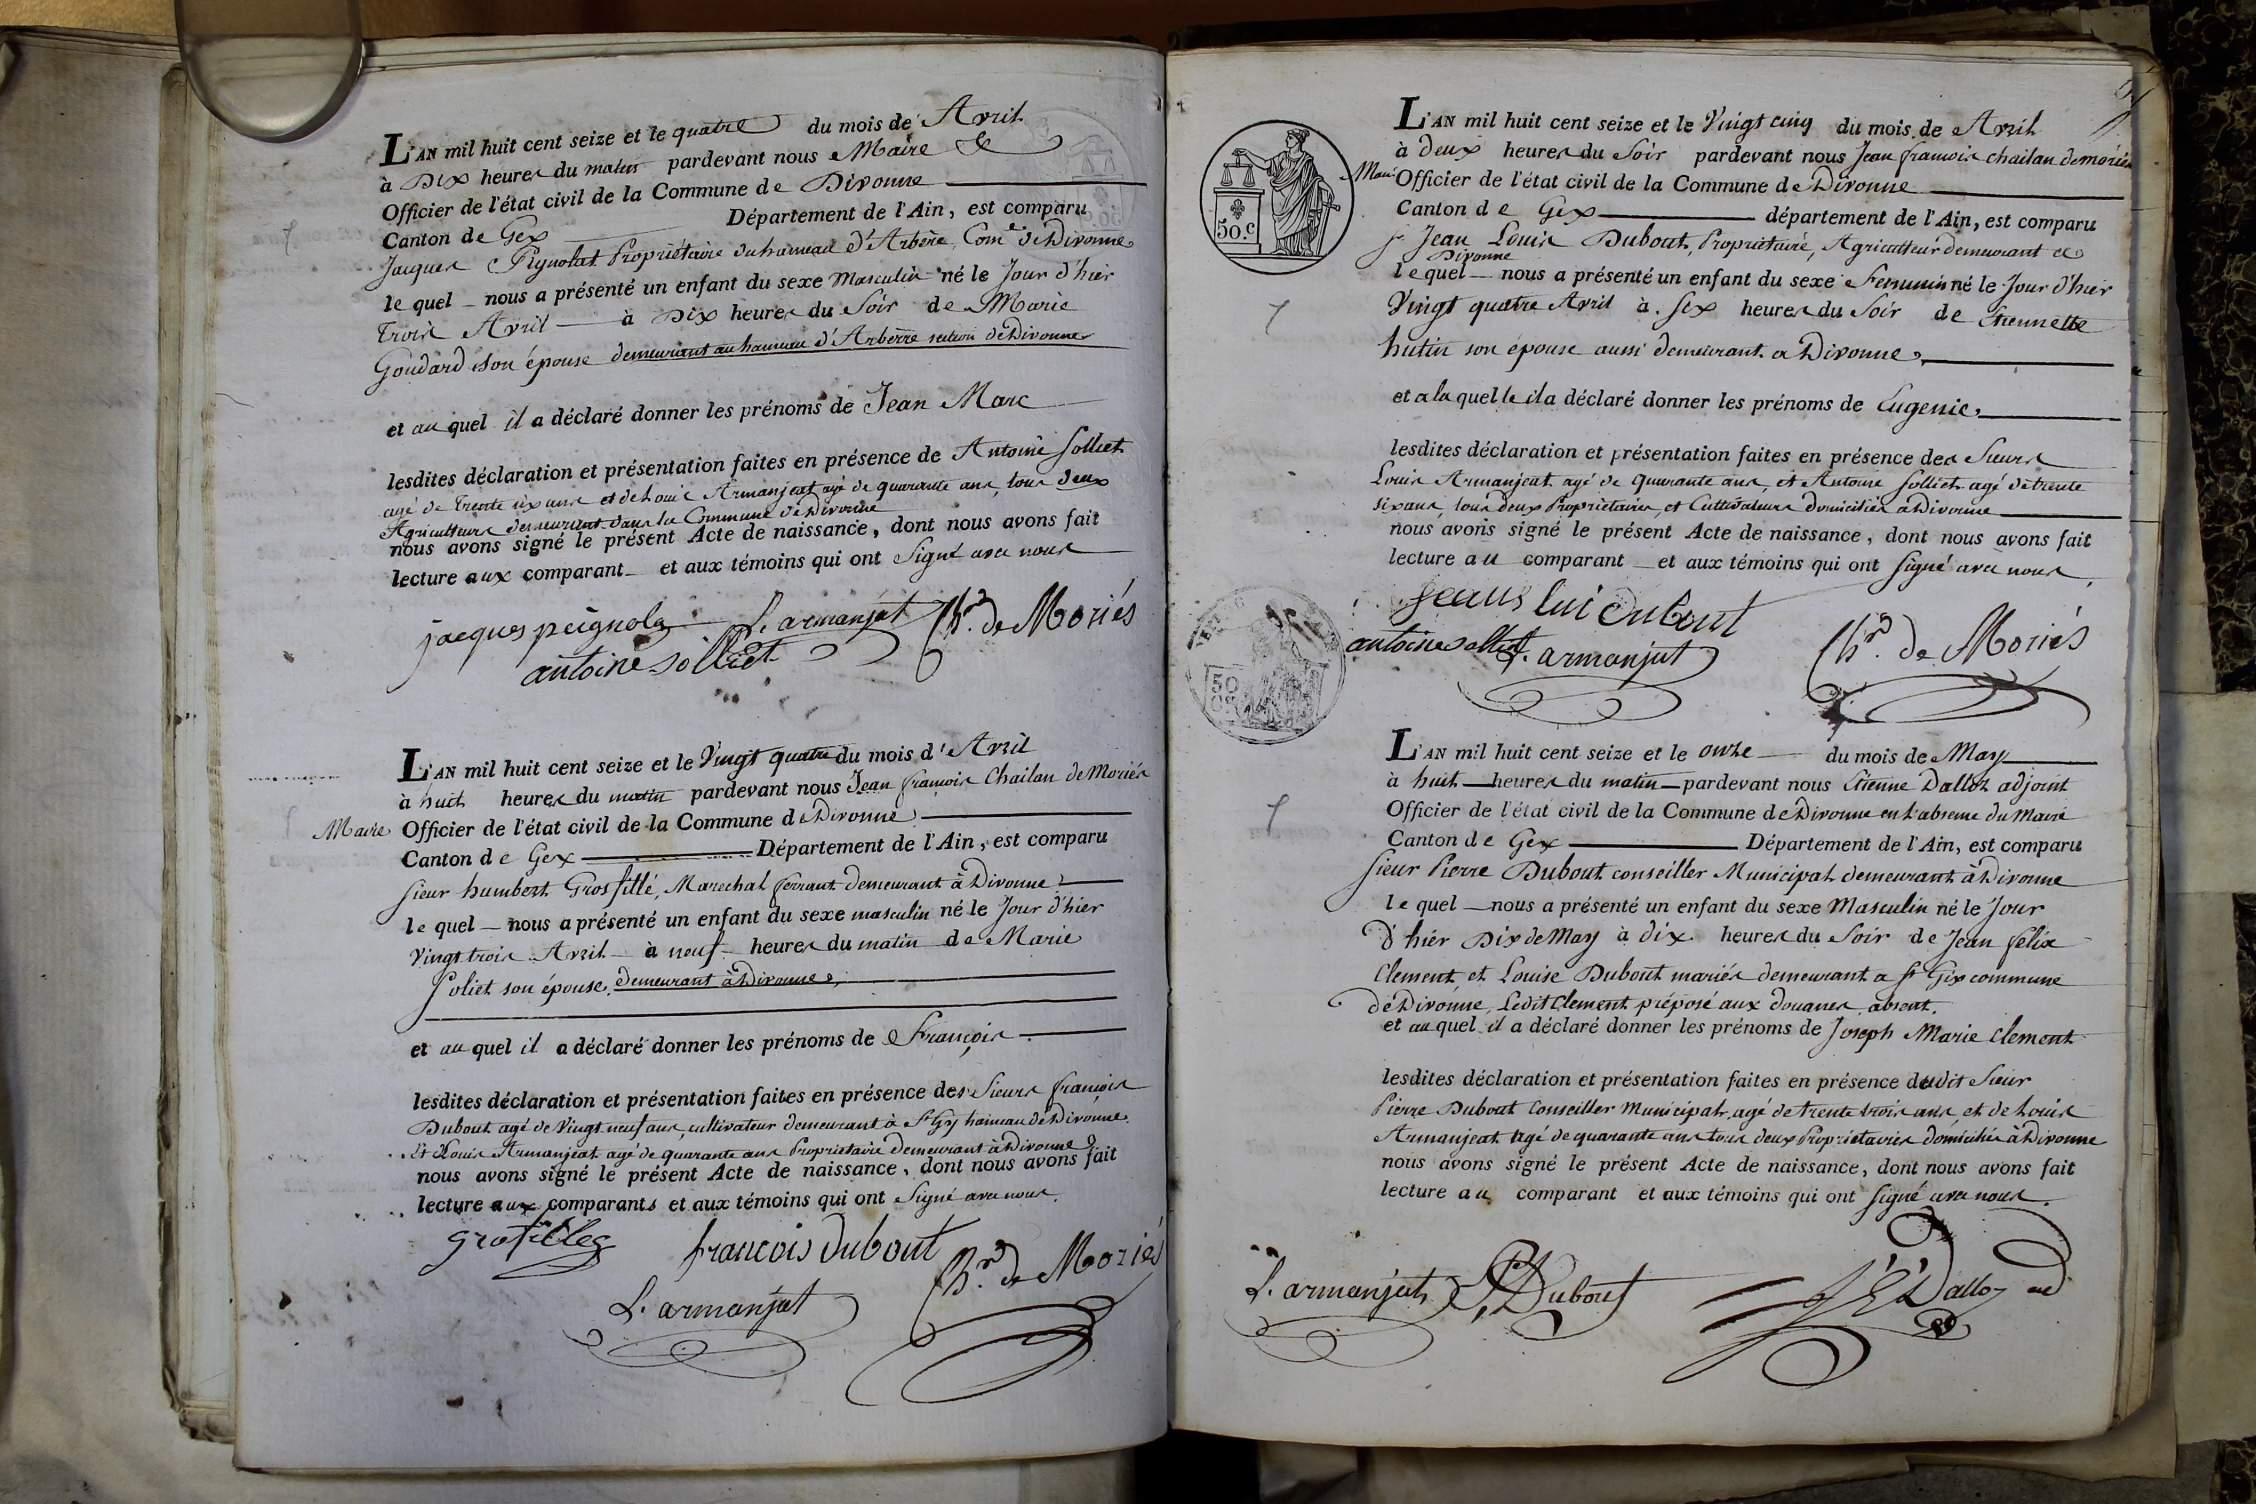 L'AN mil huit cent seize et le quatre du mois de Avril
à Dix heures du matin pardevant nous Maire &
Officier de l'état civil de la Commune de Divonne
Canton de Gex Département de l'Ain, est comparu
Jacques Pignolat Propriétaire du hameau d'Arbère, Com.e de Divonne
le quel nous a présenté un enfant du sexe Masculin né le Jour d'hier
trois Avril à Dix heures du Soir de Marie
Goudard son épouse demeurant au hameau d'Arberre section de Divonne
et au quel il a déclaré donner les prénoms de Jean Marc
lesdites déclaration et présentation faites en présence de Antoine Solliet
agé de trente six ans et de Louis Armanjeat agé de quarante ans, tous deux
Agriculteurs demeurant dans la Commune de Divonne
nous avons signé le présent Acte de naissance, dont nous avons fait
lecture aux comparant et aux témoins qui ont Signé avec nous
jacques peignola L. armanjat Ch.r de Moriés
antoine solliet
L'AN mil huit cent seize et le Vingt quatre du mois d'Avril
à huit heures du matin pardevant nous Jean françois Chailan de Moriés
Maire Officier de l'état civil de la Commune de Divonne
Canton de Gex Département de l'Ain, est comparu
Sieur humbert Grosfillé, Marechal ferrant demeurant à Divonne
le quel nous a présenté un enfant du sexe masculin né le Jour d'hier
Vingt trois Avril à neuf heures du matin de Marie
Soliet son épouse, demeurant à Divonne,
et au quel il a déclaré donner les prénoms de François
lesdites déclaration et présentation faites en présence des Sieurs françois
Dubout agé de Vingt neuf ans, cultivateur demeurant à St Gy hameau de Divonne.
Et Louis Armanjeat agé de quarante ans Propriétaire demeurant à Divonne
nous avons signé le présent Acte de naissance, dont nous avons fait
lecture aux comparants et aux témoins qui ont Signé avec nous.
grosfilleg francois dubout Ch.r de Moriés
L. armanjat
50.c
L'AN mil huit cent seize et le Vingt cinq du mois de Avril
à deux heures du Soir pardevant nous Jean francois chailan de moriés
Maire Officier de l'état civil de la Commune de Divonne
Canton de Gex département de l'Ain, est comparu
Jean Louis Dubout, Propriétaire, Agriculteur demeurant a
Divonne
le quel nous a présenté un enfant du sexe Feminin né le Jour d'hier
Vingt quatre Avril à Six heures du Soir de Etiennette
hutin son épouse aussi demeurant a Divonne,
et a la quelle il a déclaré donner les prénoms de Eugenie,
lesdites déclaration et présentation faites en présence des Sieurs
Louis Armanjeat agé de quarante ans, et Antoine Solliet agé de trente
six ans, tous deux Propriétaires, et Cultivateurs domiciliés à Divonne
nous avons signé le présent Acte de naissance, dont nous avons fait
lecture au comparant et aux témoins qui ont Signé avec nous,
jeaus lui dubout
antoine solliet L. armanjat Ch.r de Moriés
50
L'AN mil huit cent seize et le onze du mois de May
à huit heures du matin pardevant nous Etienne Dalloz adjoint
Officier de l'état civil de la Commune de Divonne en l'absence du Maire
Canton de Gex Département de l'Ain, est comparu
Sieur Pierre Dubout conseiller Municipal demeurant à Divonne
le quel nous a présenté un enfant du sexe Masculin né le Jour
d'hier Dix de May à dix heures du Soir de Jean felix
Clement, et Louise Dubout mariés demeurant a St Gix commune
de Divonne, Ledit Clement préposé aux douanes, absent.
et au quel il a déclaré donner les prénoms de Joseph Marie Clement
lesdites déclaration et présentation faites en présence dudit Sieur
Pierre Dubout Conseiller Municipal, agé de trente trois ans et de Louis
Armanjeat agé de quarante ans tous deux Propriétaires domiciliés à Divonne
nous avons signé le présent Acte de naissance, dont nous avons fait
lecture au comparant et aux témoins qui ont Signé avec nous.
L. armanjat P. Dubout E Dalloz ad